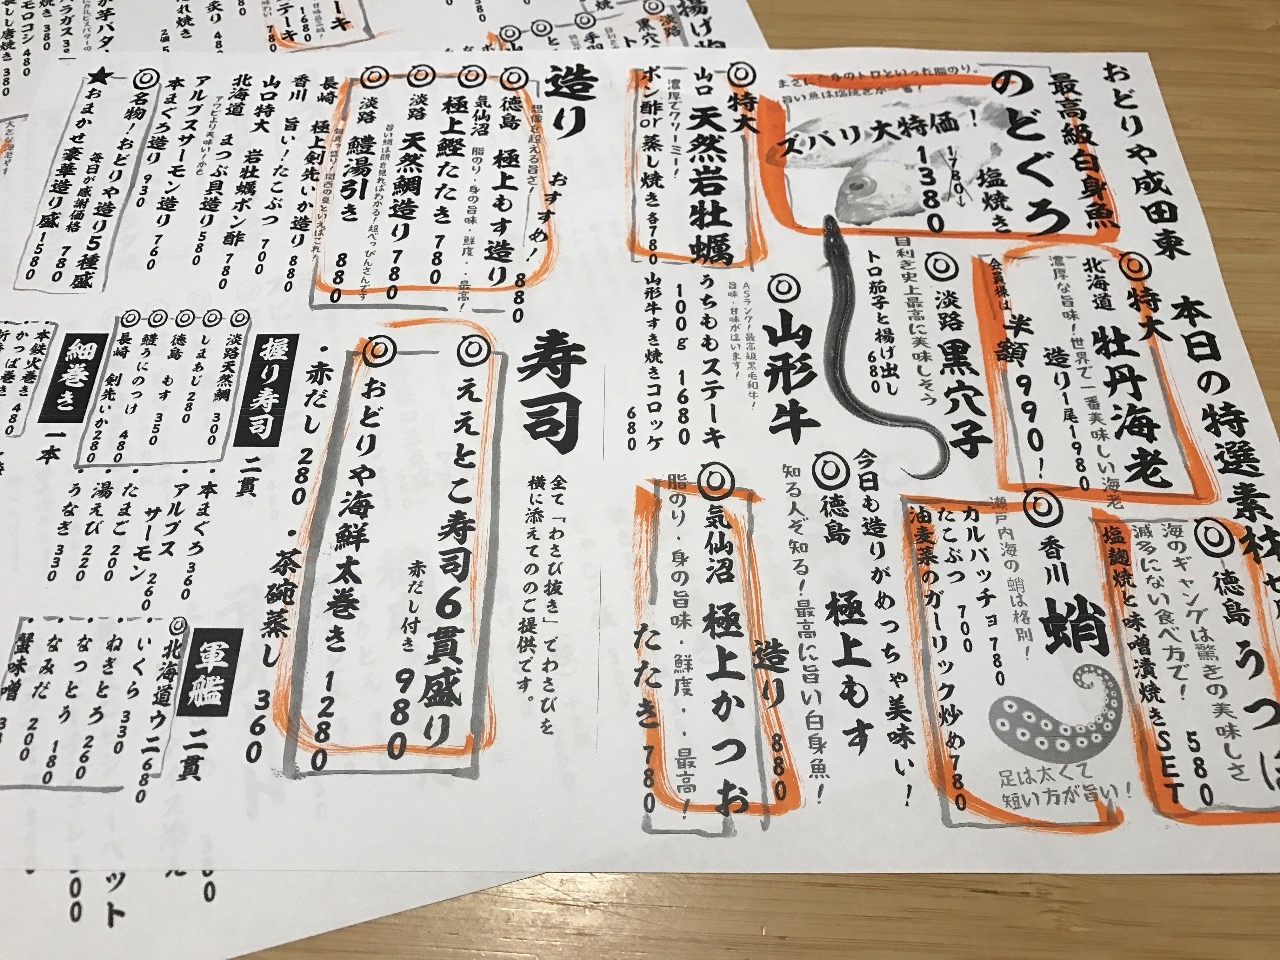 おどりや成田東
本日の特選素材
最高級白身魚
のどぐろ
塩焼き
1780
1380
ズバリ大特価！
徳島
海のギャングは驚きの美味しさ
滅多にない食べ方で！
塩麹焼きと味噌漬焼きSET
580
特大
北海道 牡丹海老
濃厚な旨味！世界で一番美味しい海老
造り1尾1980
会員様は半額990！
香川 蛸
瀬戸内海の蛸は格別！
カルパッチョ 780
たこぶつ 700
油麦菜のガーリック炒め780
足は太くて
短い方が旨い！
淡路 黒穴子
目利き史上最高に美味しそう
トロ茄子と揚げ出し
680
今日も造りがめっちゃ美味い！
徳島 極上もす
知る人ぞ知る！最高に旨い白身魚！
造り 880
特大
山口 天然岩牡蠣
濃厚でクリーミー！
ポン酢or蒸し焼き 各780
山形牛
A5ランク！最高級黒毛和牛！
旨味、甘味が違います！
うちももステーキ
100g 1680
山形牛すき焼きコロッケ
680
気仙沼 極上かつお
脂のり・身の旨味・鮮度・・最高！
たたき 780
造り おすすめ！
想像を超える旨さ！
徳島 極上もす造り 880
気仙沼 脂のり・身の旨味・鮮度・・最高！
極上鰹たたき 780
淡路 天然鯛造り 780
淡路 鱧湯引き 880
長崎 極上剣先いか造り 880
香川 旨い！たこぶつ 700
山口特大 岩牡蠣ポン酢 780
北海道 まつぶ貝造り 580
アルプスサーモン造り 760
本まぐろ造り 930
名物！おどりや造り5種盛
毎日が感謝価格 780
★おまかせ豪華造り盛 1580
寿司
全て「わさび抜き」でわさびを
横に添えてのご提供です。
ええとこ寿司6貫盛り
赤だし付き 980
おどりや海鮮太巻き 1280
・赤だし 280 ・茶碗蒸し 360
握り寿司 二貫
淡路天然鯛 300
しまあじ 280
徳島 もす 350
鱧うにのっけ 480
長崎 剣先いか280
・本まぐろ 360
・アルプス
サーモン 260
・たまご 200
・湯えび 220
・うなぎ 330
軍艦 二貫
北海道ウニ680
・いくら 330
・ねぎとろ 260
・なっとう 180
・なみだ 200
・蟹味噌
細巻き 一本
本鮪火巻き 480
かっぱ巻き